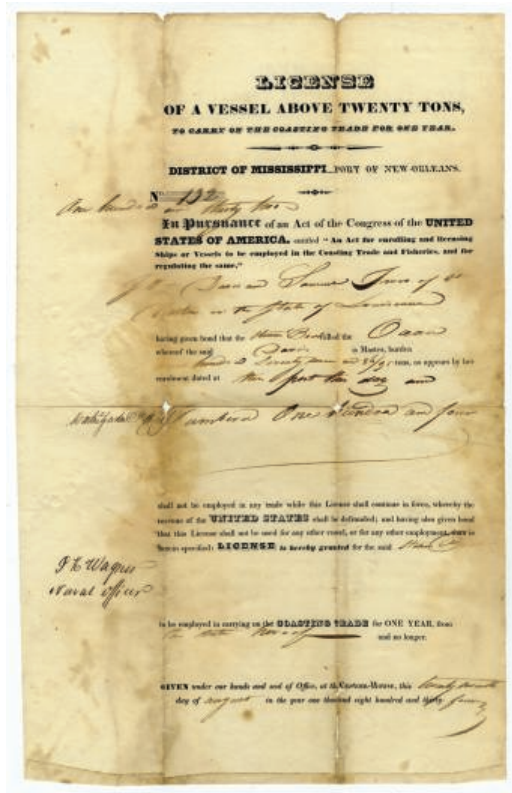 LICENSE
OF A VESSEL ABOVE TWENTY TONS,
TO CARRY ON THE COASTING TRADE FOR ONE YEAR.
DISTRICT OF MISSISSIPPI PORT OF NEW-ORLEANS.
No 132
One hundred and thirty two
In Pursuance of an Act of the Congress of the UNITED
STATES OF AMERICA, entitled "An Act for enrolling and licensing
Ships or Vessels to be employed in the Coasting Trade and Fisheries, and for
regulating the same,"
in the State of Louisiana
having given bond that the Steam Boat called the
whereof the said Davis is Master, burden
hundred and tons, as appears by her
enrolment dated at this port this day and
Numbered One Hundred and four
shall not be employed in any trade while this License shall continue in force, whereby the
revenue of the UNITED STATES shall be defrauded; and having also given bond
that this License shall not be used for any other vessel, or for any other employment, than is
herein specified: LICENSE is hereby granted for the said
Wagner
Naval officer
to be employed in carrying on the COASTING TRADE for ONE YEAR, from
the date hereof and no longer.
GIVEN under our hands and seal of Office, at the Custom-House, this twenty
day of august in the year one thousand eight hundred and thirty